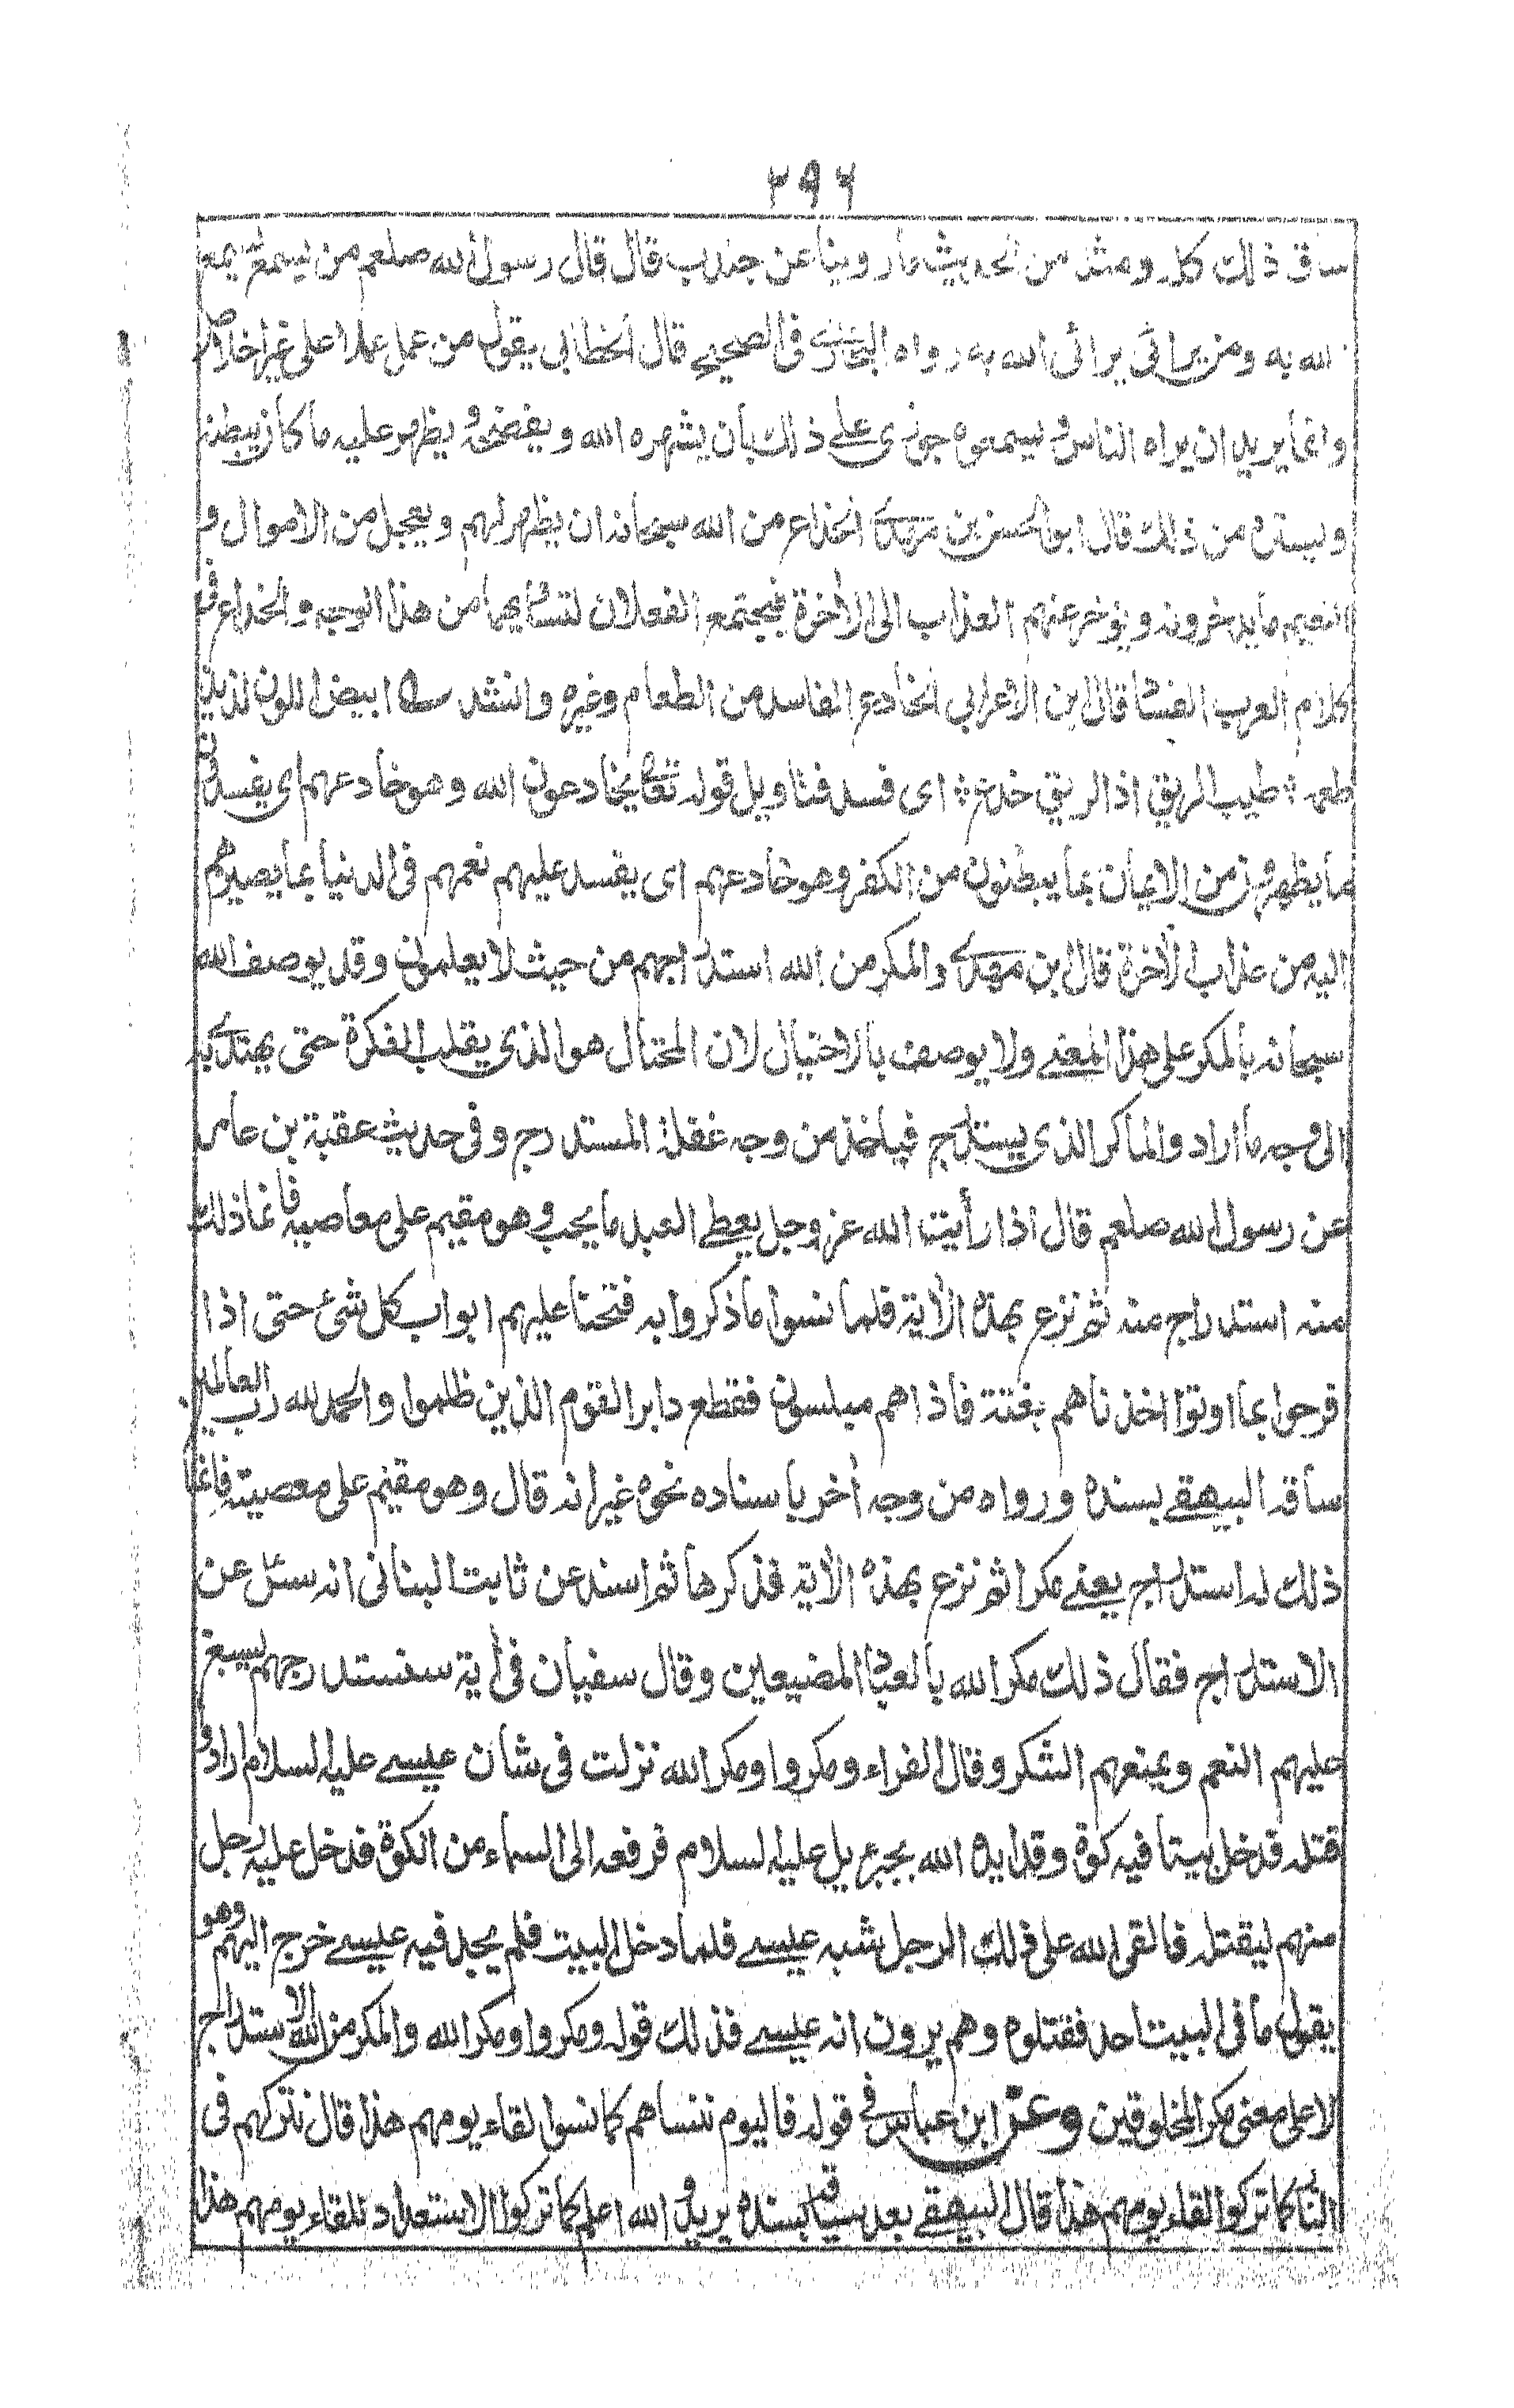 ٣٩٦
ساق ذلك كله ومثله من الحديث ما روينا عن جندب قال قال رسول الله صلعم من يسمع يسمع
الله به ومن يرائى يرائى الله به رواه البخارى فى الصحيح قال الخطابى يقول من عمل عملا على غير اخلاص
وانما يريد ان يراه الناس ويسمعوه جوزى على ذلك بان يشهره الله ويفضحه ويظهر عليه ما كان يبطنه
ويستره من ذلك قال ابو الحسن بن مهدى الخداع من الله سبحانه ان يظهر لهم ويعجل من الاموال و
النعيم ما يدخرونه ويؤخر عنهم العذاب الى الأخرة فيجتمع الفعلان لتشابههما من هذا الوجه والخداع فى
كلام العرب الفساد قال ابن الاعرابى الخادع الفاسد من الطعام وغيره وانشد ابيض اللون لذيذ
طعمه ؛ طيب الريق اذا الريق خدع ؛ اى فسد فتاويل قوله تعالى يخادعون الله وهو خادعهم اى يفسدون
ما يظهرون من الايمان بما يبطنون من الكفر وهو خادعهم اى يفسد عليهم نعمهم فى الدنيا بما يصيرهم
اليه من عذاب الأخرة قال ابن مهدى والمكر من الله استدراجهم من حيث لا يعلمون وقد يوصف الله
سبحانه بالمكر على هذا المعنى ولا يوصف بالاحتيال لان المحتال هو الذى يقلب الفكرة حتى يهتدى به
الى وجه ما اراد والماكر الذى يستدرج فياخذ من وجه غفلة المستدرج وفى حديث عقبة بن عامر
عن رسول الله صلعم قال اذا رأيت الله عز وجل يعطى العبد ما يحب وهو مقيم على معاصيه فانما ذلك
منه استدراج منه ثم نزع بهذه الأية فلما نسوا ما ذكروا به فتحنا عليهم ابواب كل شئ حتى اذا
فرحوا بما اوتوا اخذناهم بغتة فاذا هم مبلسون فقطع دابر القوم الذين ظلموا والحمد لله رب العالمين
ساقه البيهقى بسنده ورواه من وجه أخر باسناده نحوه غير انه قال وهو مقيم على معصيته فانما
ذلك له استدراج يعنى مكرا ثم نزع بهذه الأية فذكرها ثم اسند عن ثابت البنانى انه سئل عن
الاستدراج فقال ذلك مكر الله بالعباد المضيعين وقال سفيان فى أية سنستدرجهم نسبغ
عليهم النعم ويمنعهم الشكر وقال الفراء ومكروا ومكر الله نزلت فى شان عيسى عليه السلام ارادوا
قتله فدخل بيتا فيه كوة وقد ايده الله بجبرءيل عليه السلام فرفعه الى السماء من الكوة فدخل عليه رجل
منهم ليقتله فالقى الله على ذلك الرجل شبه عيسى فلما دخل البيت فلم يجد فيه عيسى خرج اليهم وهو
يقول ما فى البيت احد فقتلوه وهم يرون انه عيسى فذلك قوله ومكروا ومكر الله والمكر من الله الاستدراج
لا على معنى مكر المخلوقين وعن ابن عباس فى قوله فاليوم ننساهم كما نسوا لقاء يومهم هذا قال نتركهم فى
النار كما تركوا لقاء يومهم هذا قال البيهقى بعد سياقه بسنده يريد والله اعلم كما تركوا الاستعداد للقاء يومهم هذا